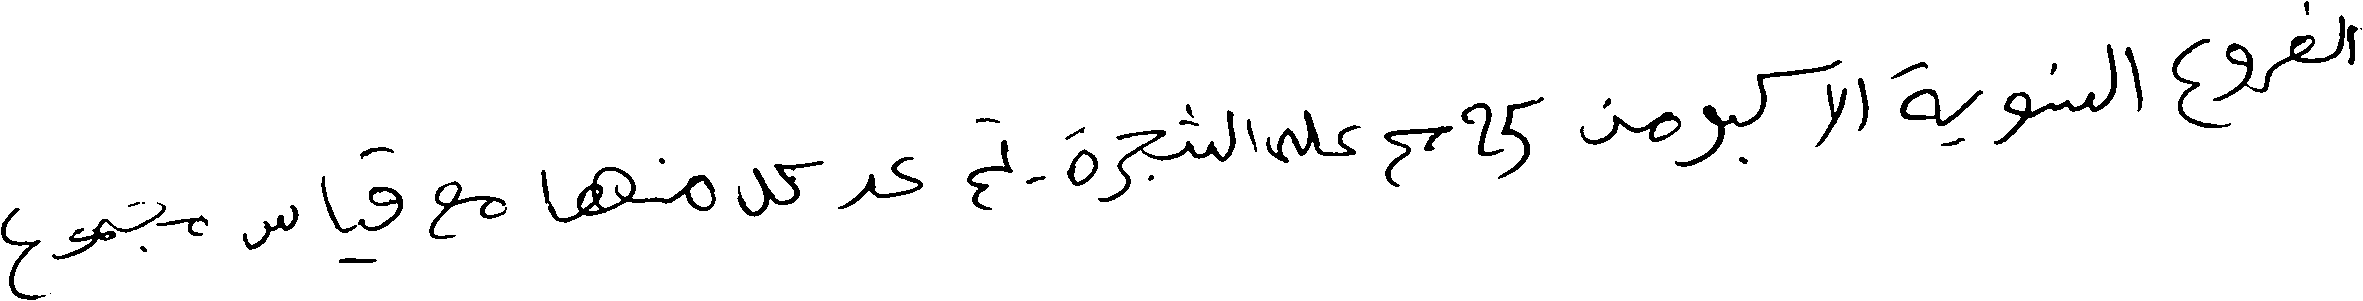 الفروع السنوية الاكبر من 25 سم على الشجرة - تم عد كل منها مع قياس مجموع